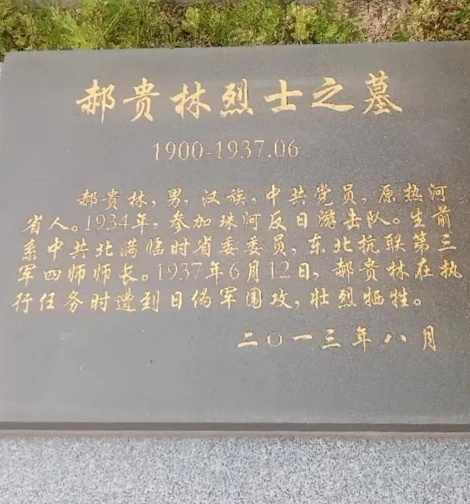 郝贵林烈士之墓
1900-1937.06
郝贵林，男，汉族，中共党员，原热河
省人。1934年，参加珠河反日游击队。生前
系中共北满临时省委委员，东北抗联第三
军四师师长。1937年6月12日，郝贵林在执
行任务时遭到日伪军围攻，壮烈牺牲。
二〇一三年八月